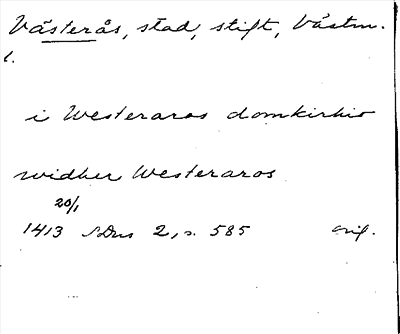 Västerås, stad, stift, Västm.
l.
i Westeraros domkirkio
widher Westeraros
20/1
1413 SDns 2, s. 585 orig.